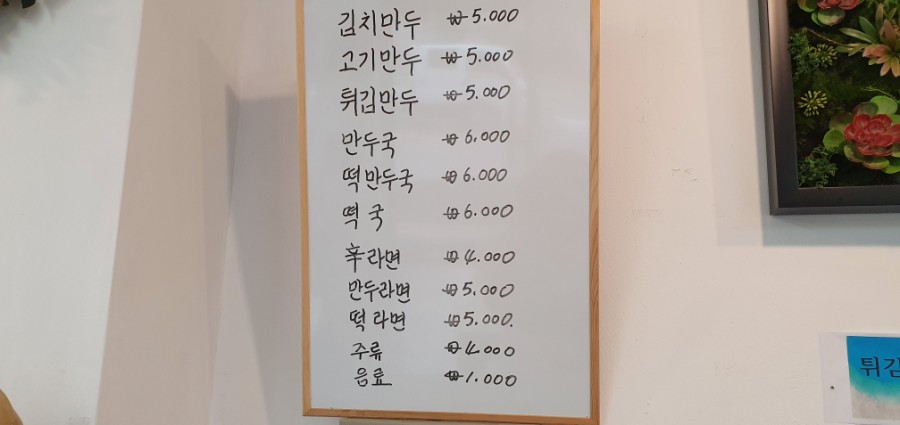 김치만두 ₩5.000
고기만두 ₩5.000
튀김만두 ₩5.000
만두국 ₩6.000
떡만두국 ₩6.000
떡국 ₩6.000
辛라면 ₩4.000
만두라면 ₩5.000
떡라면 ₩5.000.
주류 ₩4.000
음료 ₩1.000
튀김